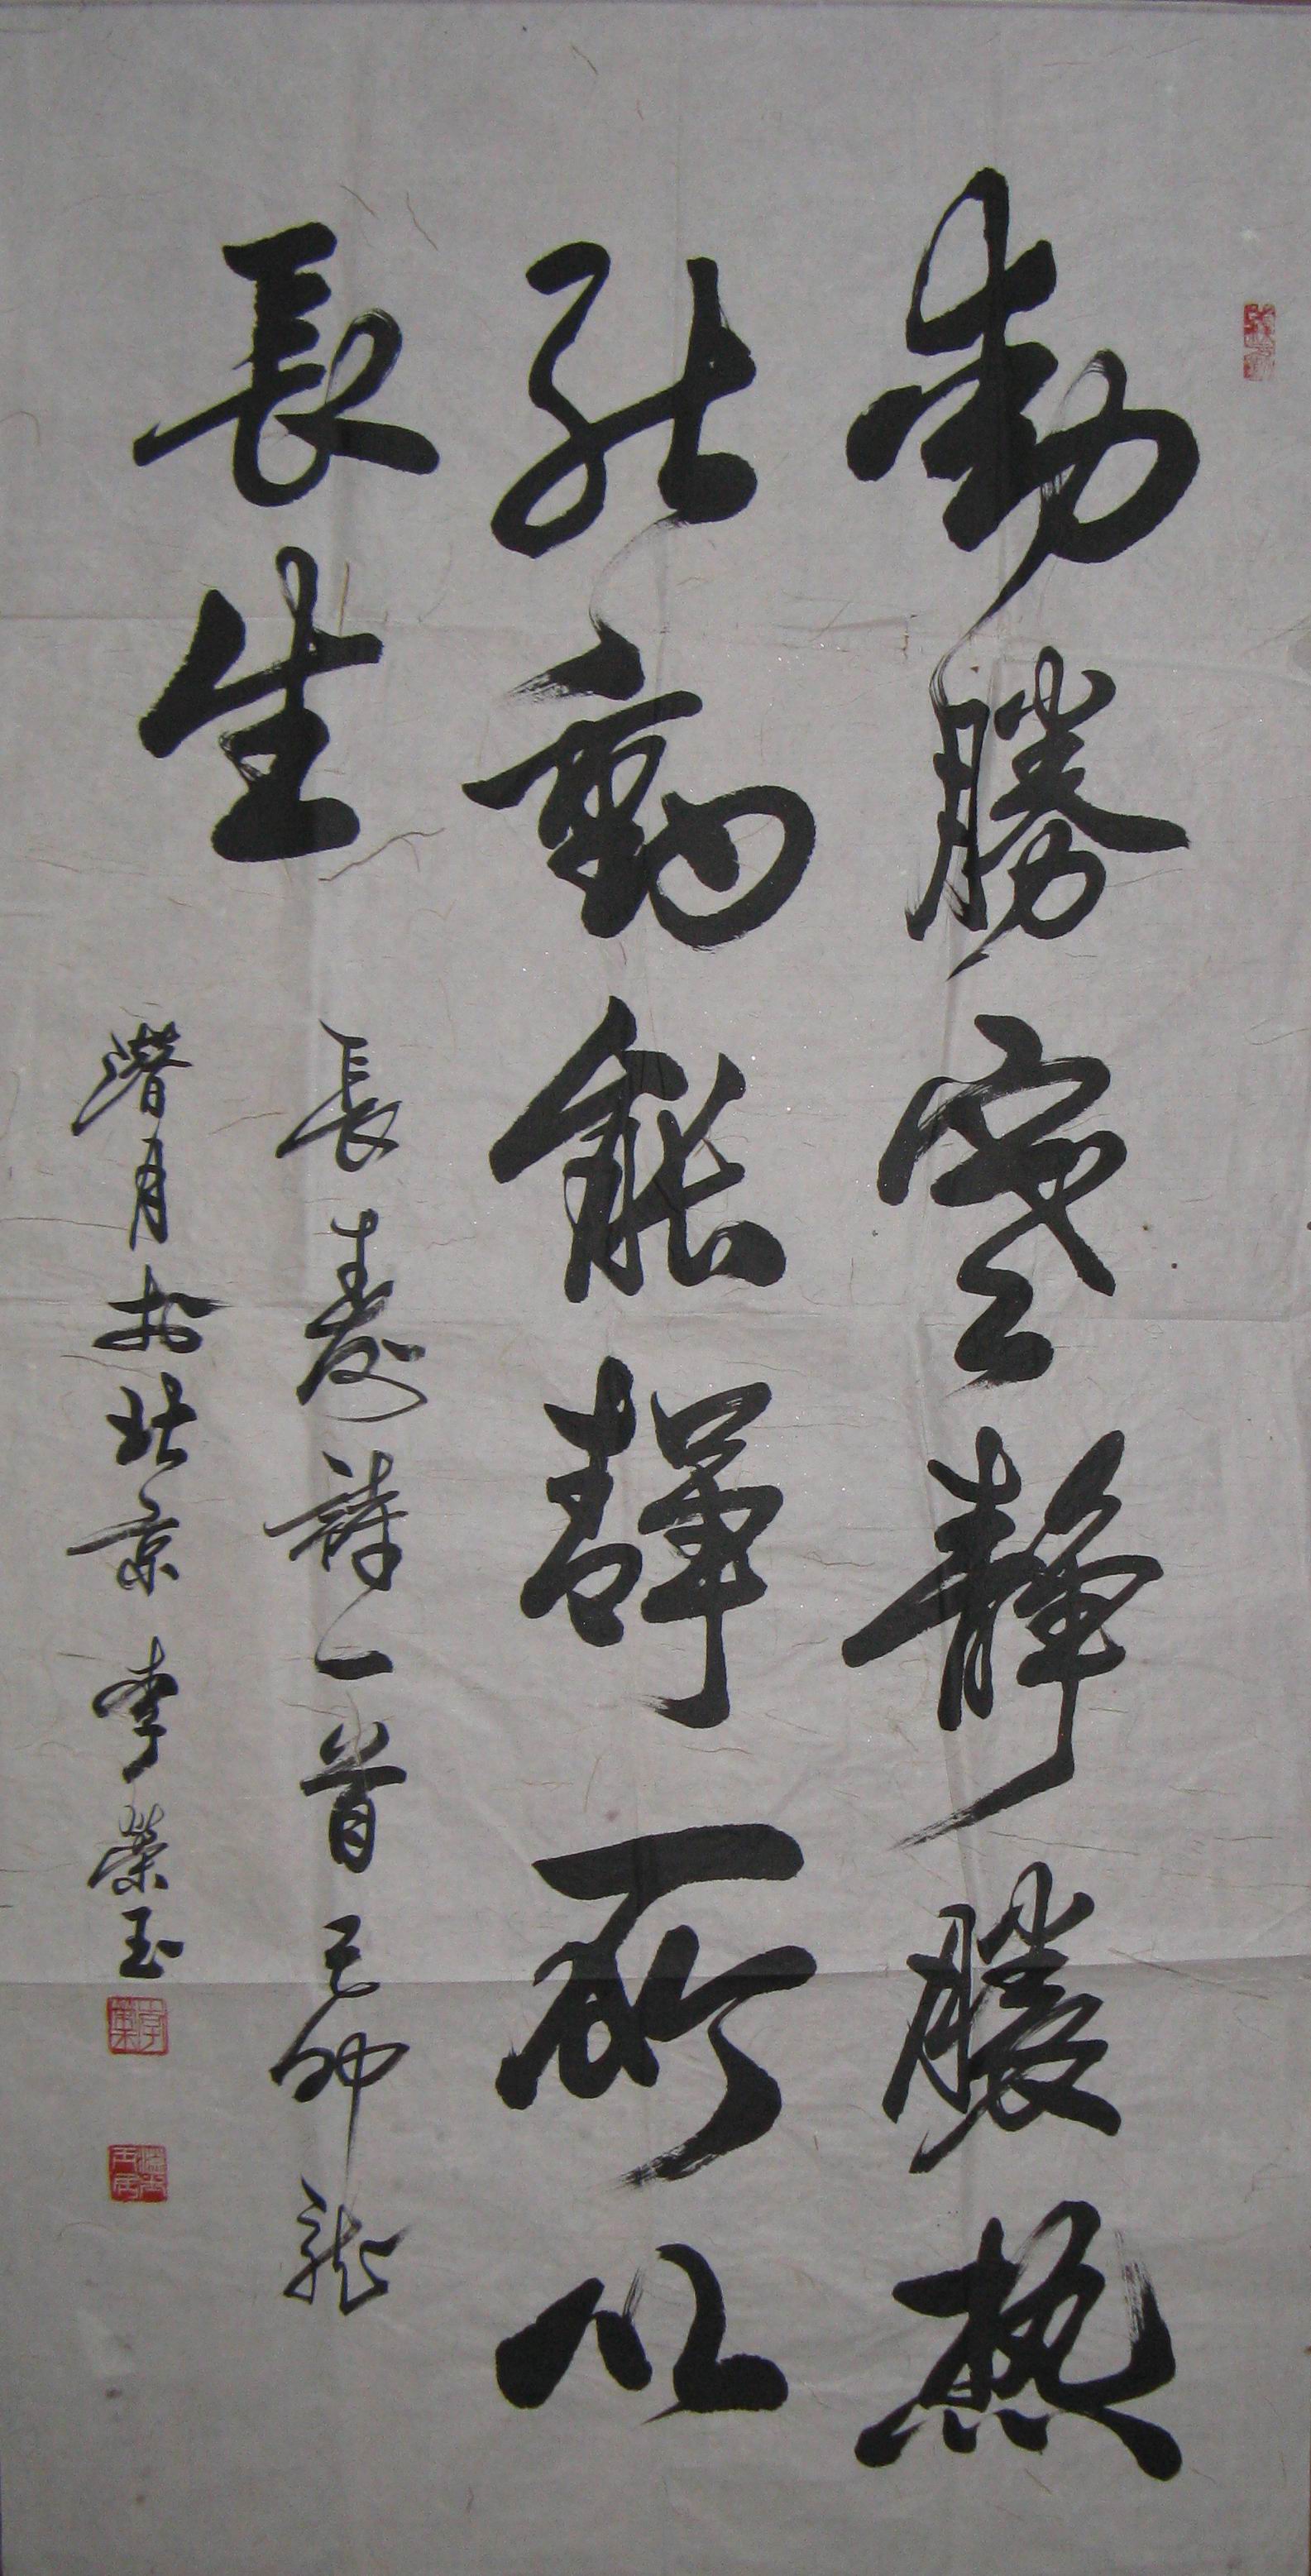 動勝寒靜勝熱
能動能靜所以
長生
長壽詩一首己卯龍
潛月於北京 李榮玉